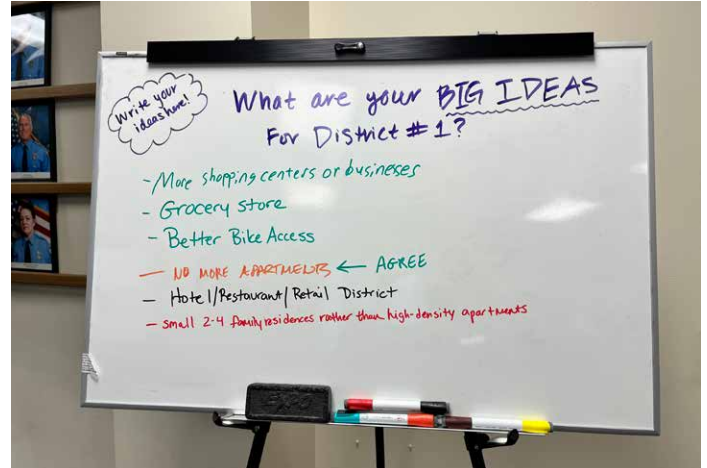 Write your
ideas here!
What are your BIG IDEAS
For District # 1?
- More shopping centers or businesses
- Grocery store
- Better Bike Access
- NO MORE APARTMENTS ← AGREE
- Hotel/Restaurant/Retail District
- small 2-4 family residences rather than high-density apartments
EXPO